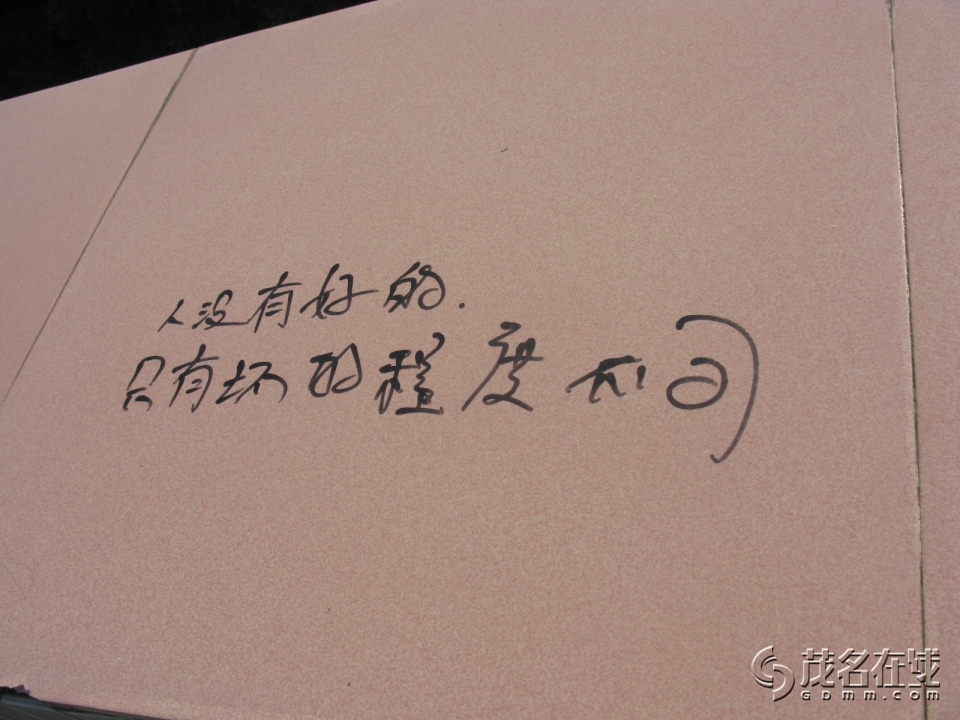 人没有好的.
只有坏的程度不同
茂名在线
GDMM.COM